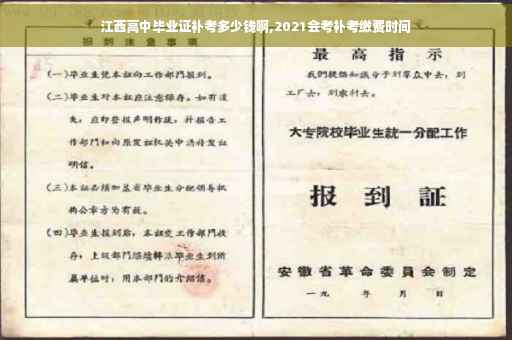 江西高中毕业证补考多少钱啊,2021会考补考缴费时间
报到注意事项
(一)毕业生凭本证向工作部门报到。
(二)毕业生对本证应注意保存。如有遗
失,应即登报声明作废,并报告工
作部门和向原发证机关申请补发证
明信。
(三)本证必须加盖省毕业生分配领导机
构公章方为有效。
(四)毕业生报到后,本证交工作部门收
存;上级部门继续转派毕业生到所
属单位时,用本部门的介绍信。
最高指示
我們提倡知識分子到羣众中去,到
工厂去,到农村去。
大专院校毕业生統一分配工作
报到証
安徽省革命委員会制定
一九 年 月 日